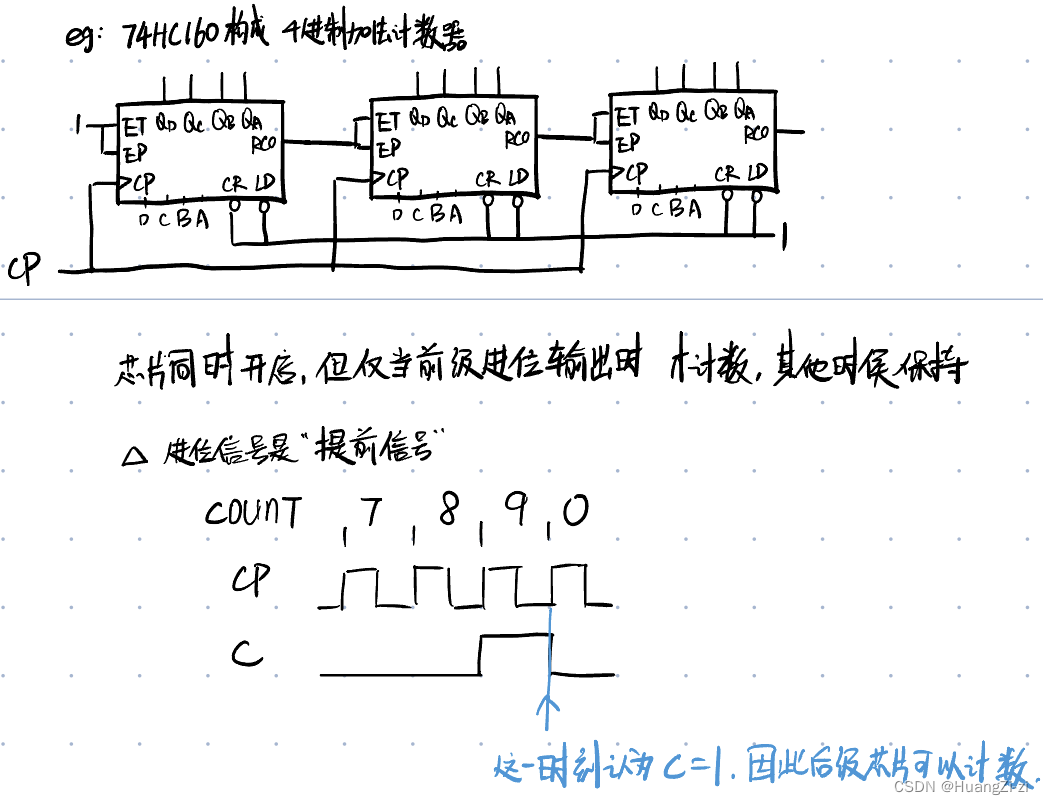 eg: 74HC160构成 4进制加法计数器
1 ET QD QC QB QA RCO ET QD QC QB QA RCO ET QD QC QB QA RCO
EP EP EP
CP CR LD CP CR LD CP CR LD
D C B A D C B A D C B A
1
CP
芯片同时开启,但仅当前级进位输出时 才计数,其他时侯保持
△ 进位信号是"提前信号"
COUNT 7 8 9 0
CP
C
这一时刻认为C=1.因此后级芯片可以计数.
CSDN @HuangZi-zi